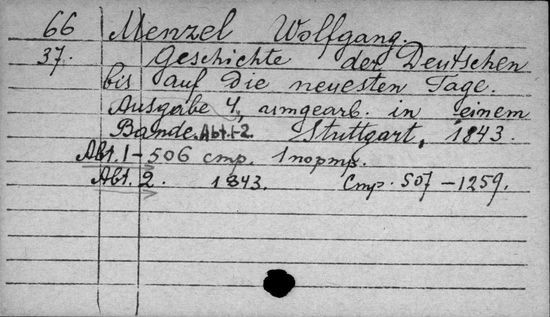 66 Menzel Wolfgang.
37. Geschichte der Deutschen
bis auf die neuesten Tage.
Ausgabe 4, umgearb. in einem
Bande. Abt. 1-2. Stuttgart, 1843.
Abt. 1 – 506 стр. 1 портр.
Abt. 2. 1843. Стр. 507 – 1259.